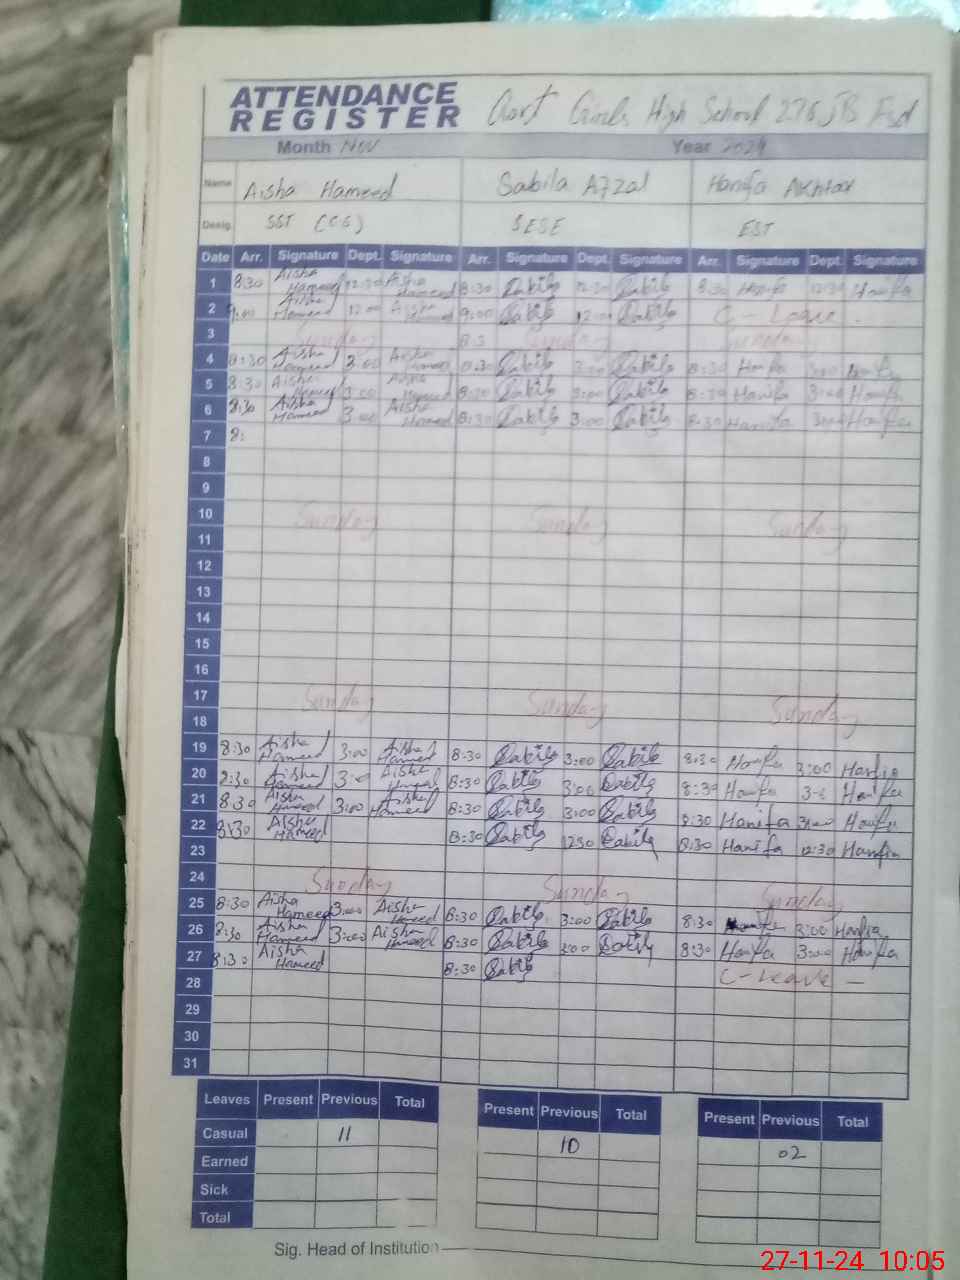 ATTENDANCE REGISTER Govt Girls High School 276 JB Fsd
Month Nov Year 2024
Name Aisha Hameed Sabila Afzal Hanifa Akhtar
Desig. SST (CS) SESE EST
Date Arr. Signature Dept. Signature Arr. Signature Dept. Signature Arr. Signature Dept. Signature
1 8:30 Aisha Hameed 12:30 Aisha Hameed 8:30 Sabila 12:30 Sabila 8:30 Hanifa 12:30 Hanifa
2 9:00 Aisha Hameed 12:00 Aisha Hameed 9:00 Sabila 12:00 Sabila C - Leave -
3 Sunday Sunday Sunday
4 8:30 Aisha Hameed 3:00 Aisha Hameed 8:30 Sabila 3:00 Sabila 8:30 Hanifa 3:00 Hanifa
5 8:30 Aisha Hameed 3:00 Aisha Hameed 8:30 Sabila 3:00 Sabila 8:30 Hanifa 3:00 Hanifa
6 8:30 Aisha Hameed 3:00 Aisha Hameed 8:30 Sabila 3:00 Sabila 8:30 Hanifa 3:00 Hanifa
7 8:
8
9
10 Sunday Sunday Sunday
11
12
13
14
15
16
17 Sunday Sunday Sunday
18
19 8:30 Aisha Hameed 3:00 Aisha Hameed 8:30 Sabila 3:00 Sabila 8:30 Hanifa 3:00 Hanifa
20 8:30 Aisha Hameed 3:00 Aisha Hameed 8:30 Sabila 3:00 Sabila 8:30 Hanifa 3:00 Hanifa
21 8:30 Aisha Hameed 3:00 Aisha Hameed 8:30 Sabila 3:00 Sabila 8:30 Hanifa 3:00 Hanifa
22 8:30 Aisha Hameed 8:30 Sabila 12:30 Sabila 8:30 Hanifa 12:30 Hanifa
23
24 Sunday Sunday Sunday
25 8:30 Aisha Hameed 3:00 Aisha Hameed 8:30 Sabila 3:00 Sabila 8:30 Hanifa 3:00 Hanifa
26 8:30 Aisha Hameed 3:00 Aisha Hameed 8:30 Sabila 3:00 Sabila 8:30 Hanifa 3:00 Hanifa
27 8:30 Aisha Hameed 8:30 Sabila C - Leave -
28
29
30
31
Leaves Present Previous Total Present Previous Total Present Previous Total
Casual 11 10 02
Earned
Sick
Total
Sig. Head of Institution
27-11-24 10:05